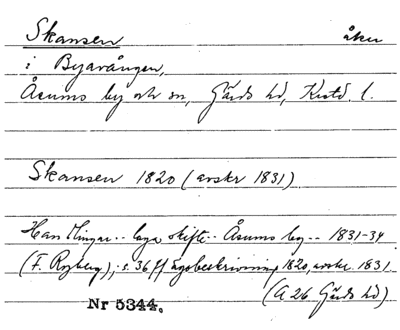 Skansen åker
i Byavången,
Åsums by och sn, Gärds hd, Kristd. l.
Skansen 1820 (avskr 1831)
Han Mingar.. laga skifte.. Åsums by.. 1831-34
(F. Ryberg), s. 36 ff ägobeskrivning 1820, avskr. 1831
(A 26 Gärds hd)
Nr 5344.